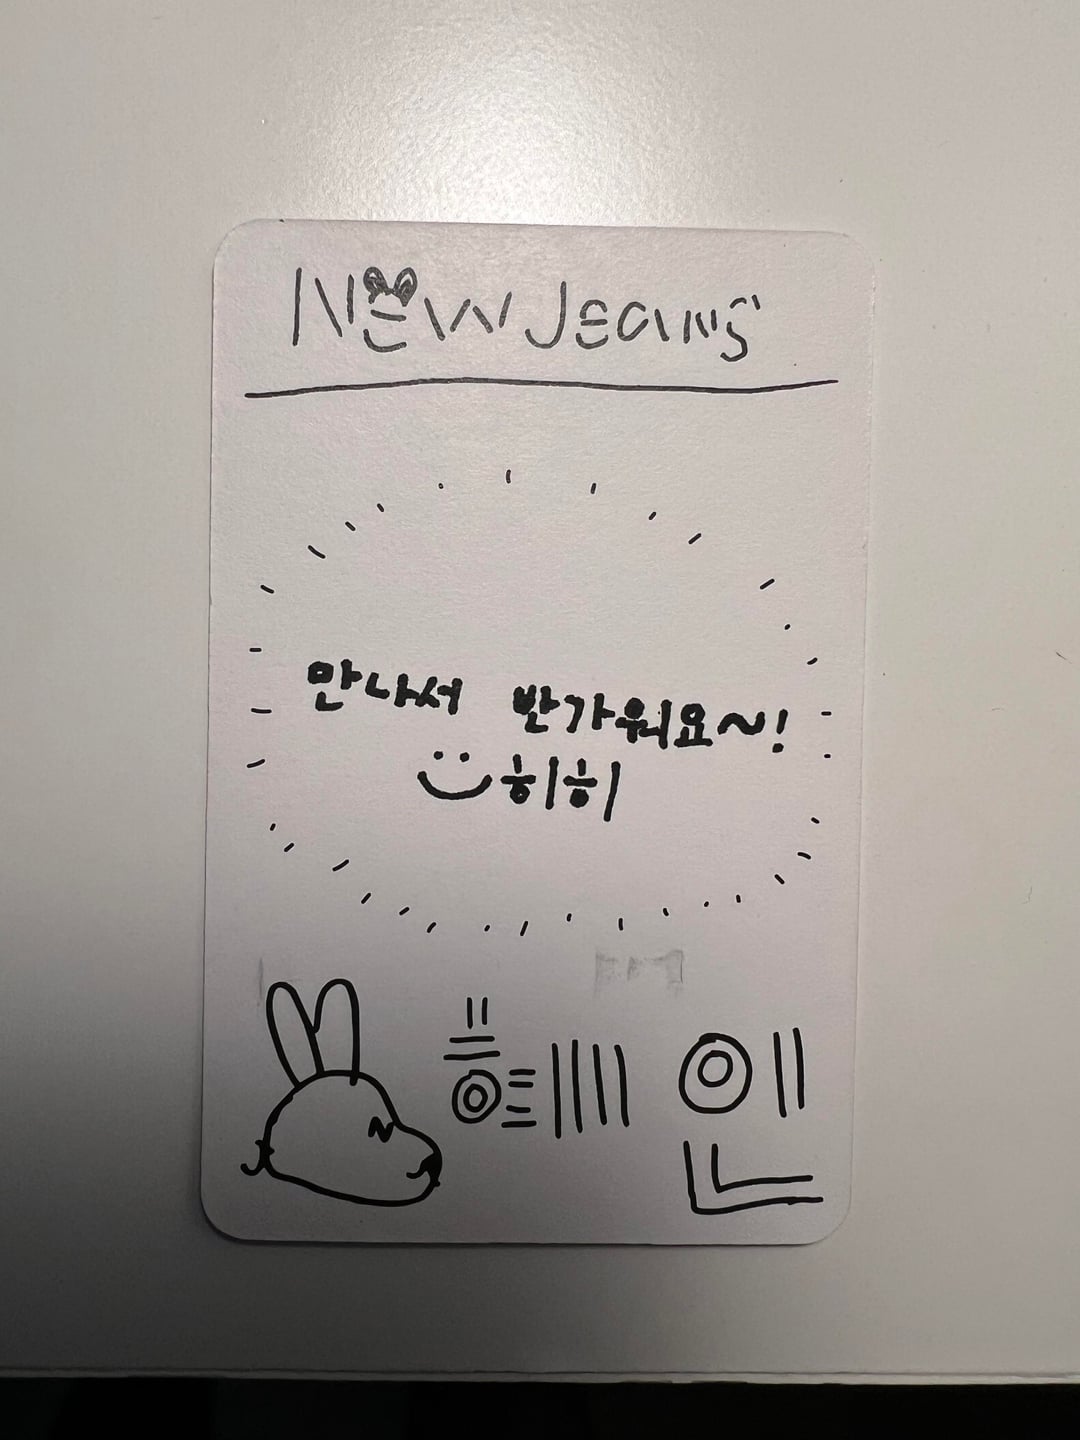 NEW Jeans
만나서 반가워요~!
히히
혜인